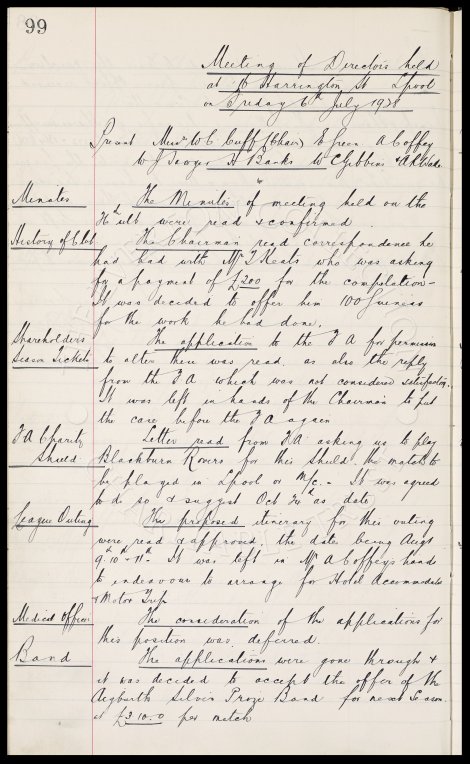 99
Meeting of Directors held
at 16 Harrington St Lpool
on Friday 6th July 1928
Present Messrs W C Cuff (Chair) E Green A Coffey
W J Sawyer H Banks W C Gibbins & A Wade
Minutes The Minutes of meeting held on the
ulto were read & confirmed.
History of Club The Chairman read correspondence he
had had with Mr T Keats who was asking
for a payment of £200 for the compilation -
It was decided to offer him 100 Guineas
for the work he had done.
Shareholders The application to the F A for permission
Season Tickets to alter these was read, as also the reply
from the F A which was not considered satisfactory.
It was left in hands of the Chairman to put
the case before the F A again
F A Charity Letter read from F A asking us to play
Shield Blackburn Rovers for this Shield, the match to
be played in Lpool or M/c. - It was agreed
to do so & suggest Oct 24th as date
League Outing The proposed itinerary for this outing
were read & approved, the dates being Augt
9th 10th & 11th. It was left in Mr A Coffeys hands
to endeavour to arrange for Hotel Accommodation
& Motor Trip
Medical Officer The consideration of the applications for
this position was deferred.
Band The applications were gone through &
it was decided to accept the offer of the
Aigburth Silver Prize Band for next Season
at £3.10.0 per match